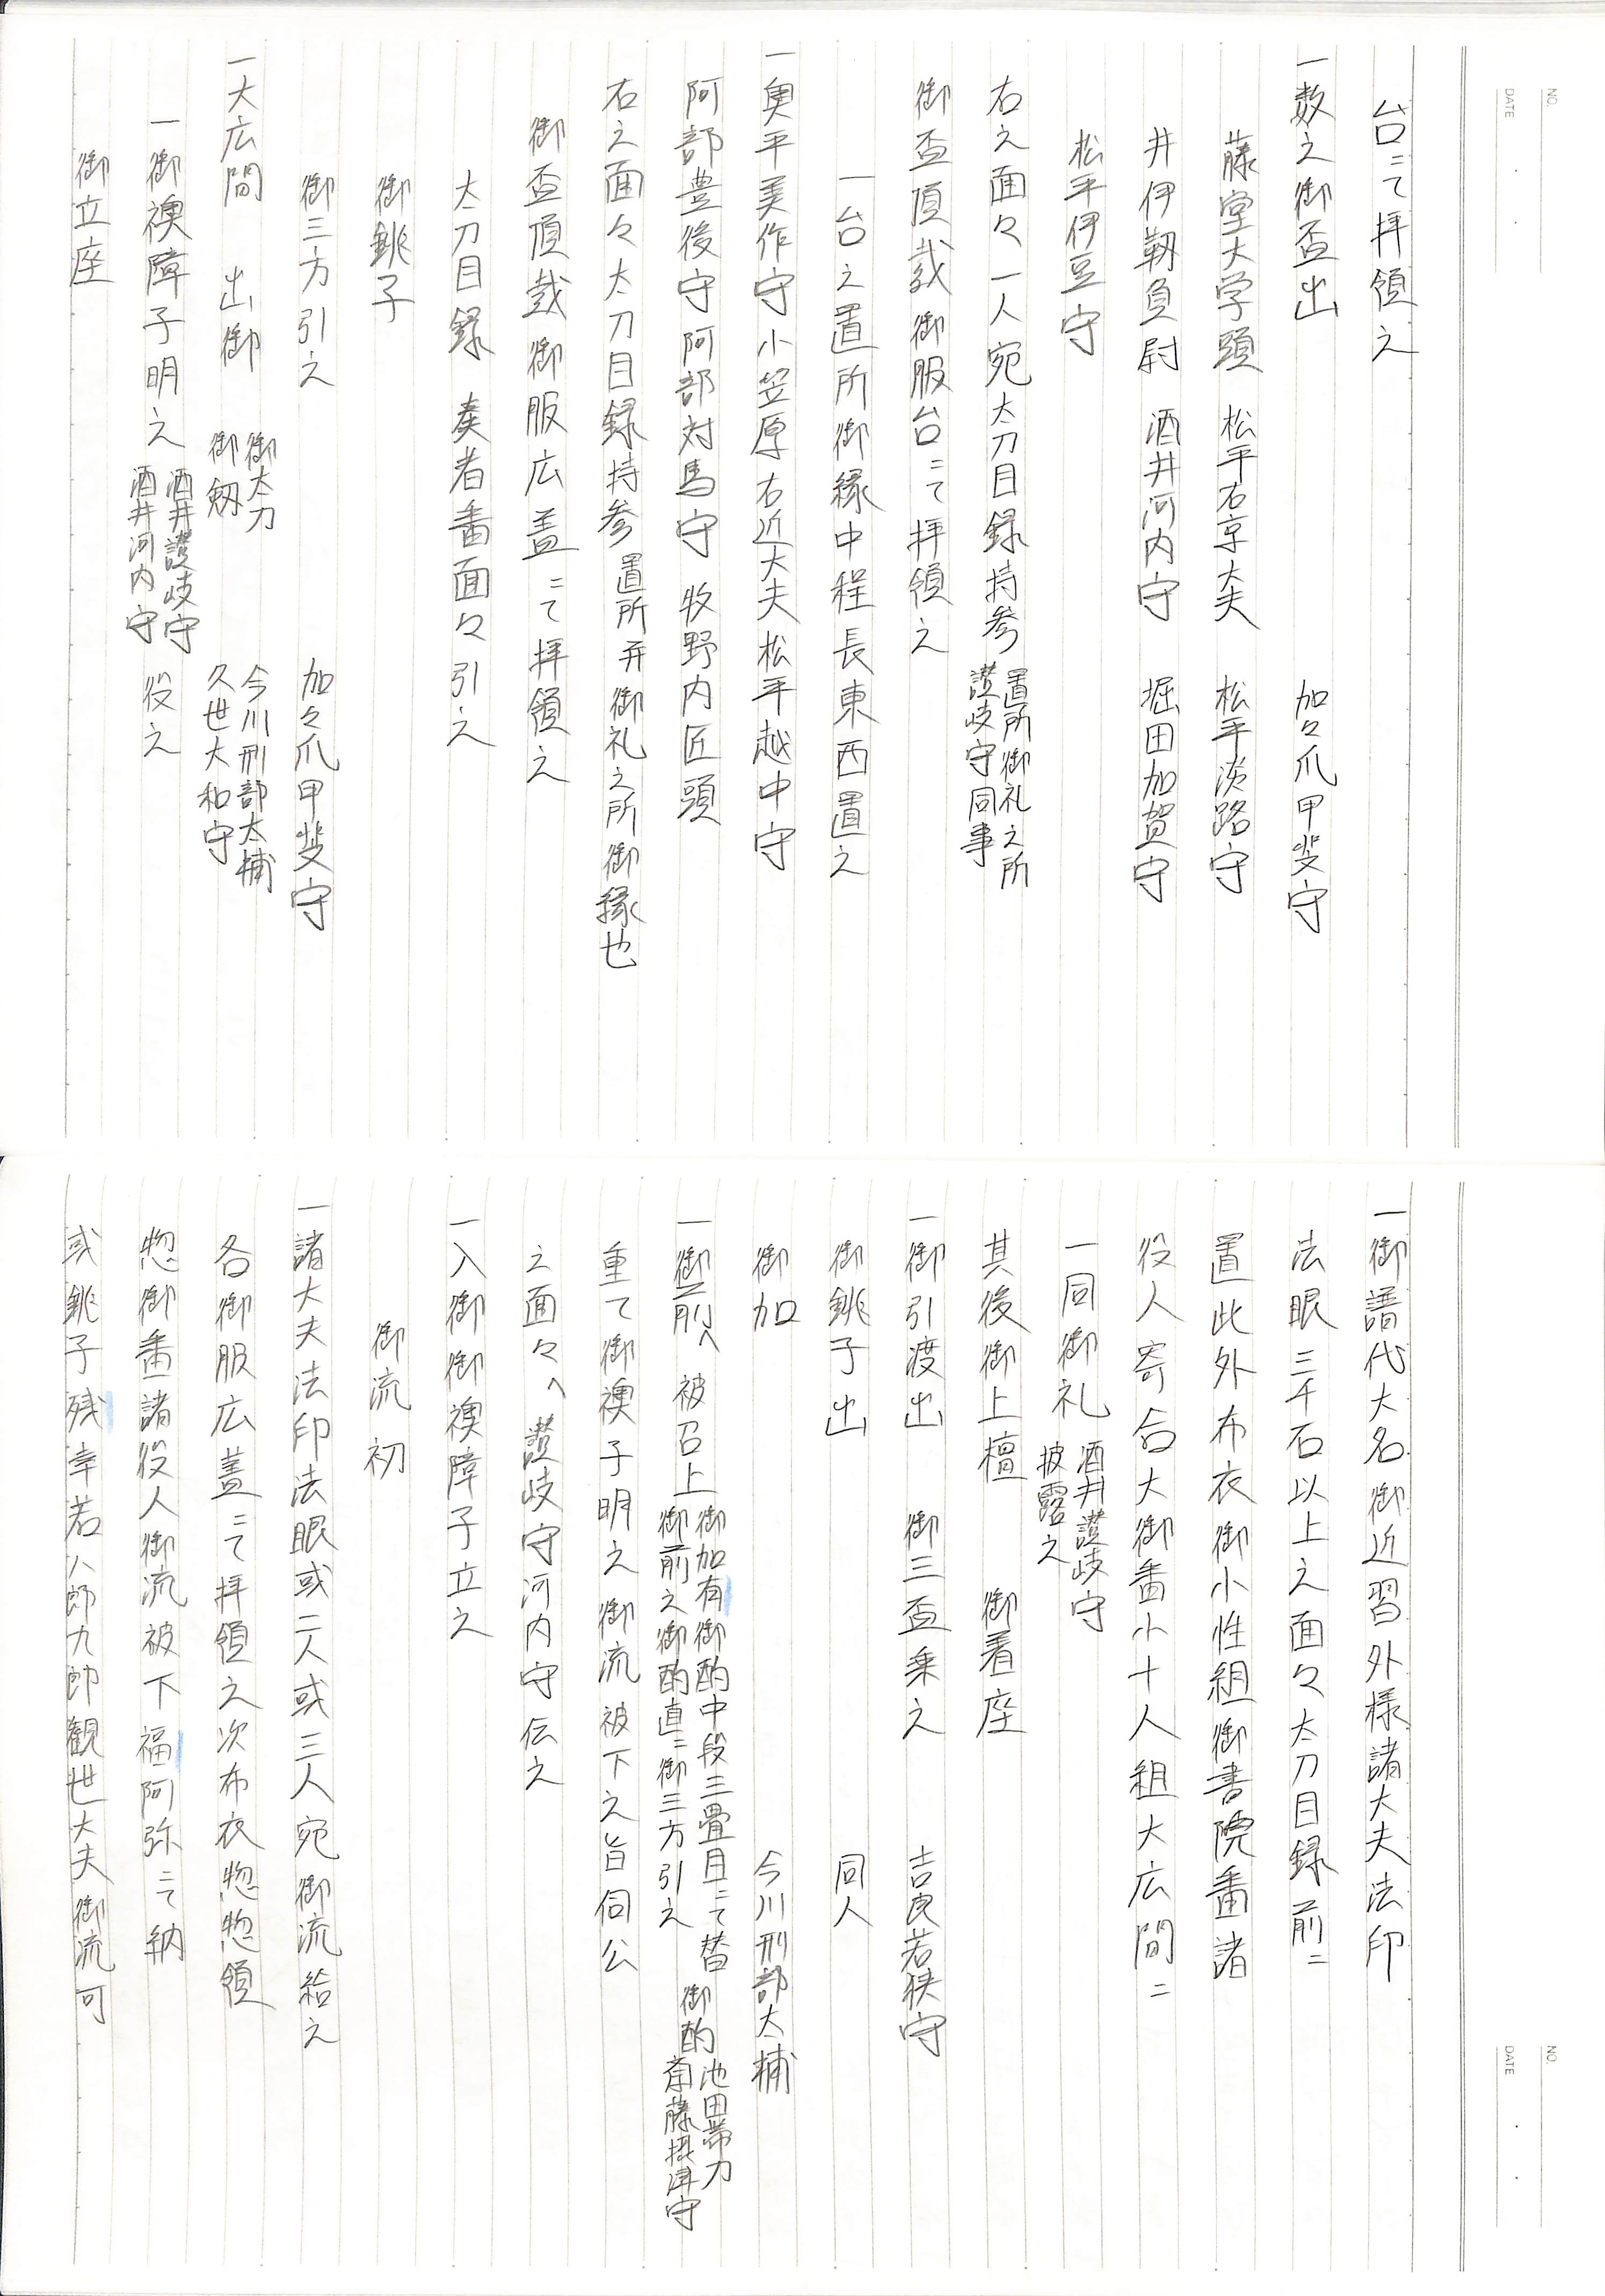 NO.
DATE
台ニて拝領之
一数之御盃出　加々爪甲斐守
藤堂大学頭　松平右京大夫　松平淡路守
井伊靱負尉　酒井河内守　堀田加賀守
松平伊豆守
右之面々一人宛太刀目録持参　置所御礼之所
讃岐守同事
御盃頂戴御服台ニて拝領之
一台之置所御縁中程長東西置之
一奥平美作守小笠原右近大夫松平越中守
阿部豊後守阿部対馬守　牧野内匠頭
右之面々太刀目録持参　置所并御礼之所御縁也
御盃頂戴御服広蓋ニて拝領之
太刀目録　奏者番面々引之
御銚子
御三方引之　加々爪甲斐守
一大広間　出御　御太刀　今川刑部太輔
御剱　久世大和守
一御襖障子明之　酒井讃岐守
酒井河内守　役之
御立座
NO.
DATE
一御譜代大名御近習外様諸大夫法印
法眼三千石以上之面々太刀目録前ニ
置此外布衣御小性組御書院番諸
役人寄合大御番小十人組大広間ニ
一同御礼　酒井讃岐守
披露之
其後御上檀　御着座
一御引渡出　御三盃乗之　吉良若狭守
御銚子出　同人
御加　今川刑部太輔
一御前へ被召上　御加有御酌中段三畳目ニて替
御前之御酌直ニ御三方引之　御酌　池田帯刀
斎藤摂津守
重て御襖子明之御流被下之旨伺公
之面々へ讃岐守河内守伝之
一入御御襖障子立之
御流初
一諸大夫法印法眼或二人或三人宛御流給之
各御服広蓋ニて拝領之次布衣惣惣領
惣御番諸役人御流被下福阿弥ニて納
或銚子残幸若八郎九郎観世大夫御流可